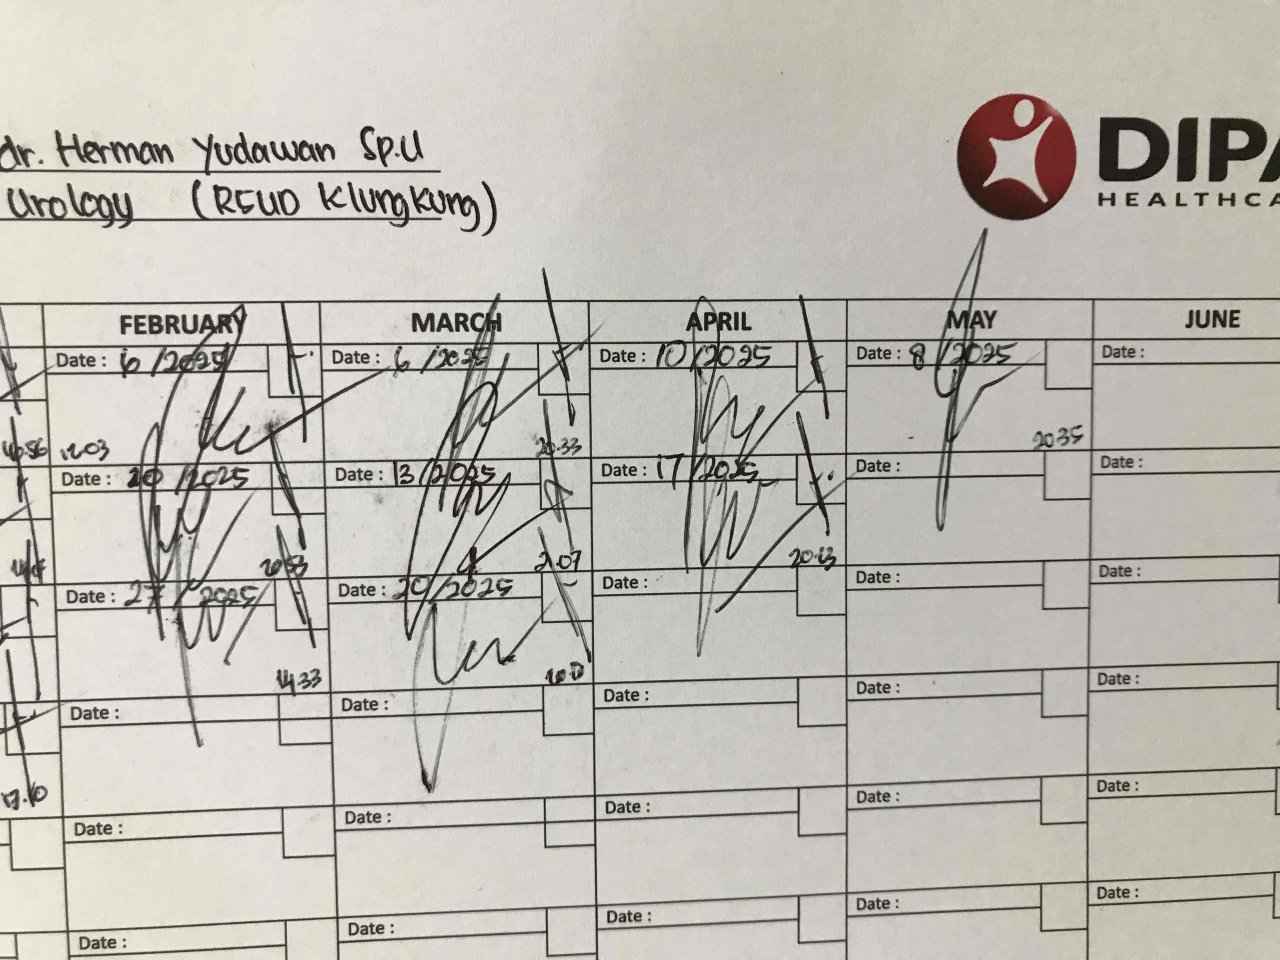 dr. Herman Yudawan Sp.U
Urology (RSUD Klungkung)
DIPA
HEALTHCA
FEBRUARY MARCH APRIL MAY JUNE
Date : 6 /2025 Date : 6 /2025 Date : 10/2025 Date : 8 /2025 Date :
16.56 12.03 20.33 2035
Date : 20 /2025 Date : 13/2025 Date : 17/2025 Date : Date :
16.53 2.07 20.13
Date : 27 / 2025 Date : 20/2025 Date : Date : Date :
14.33
Date : Date : Date : Date : Date :
17.10
Date : Date : Date : Date : Date :
Date : Date : Date : Date : Date :